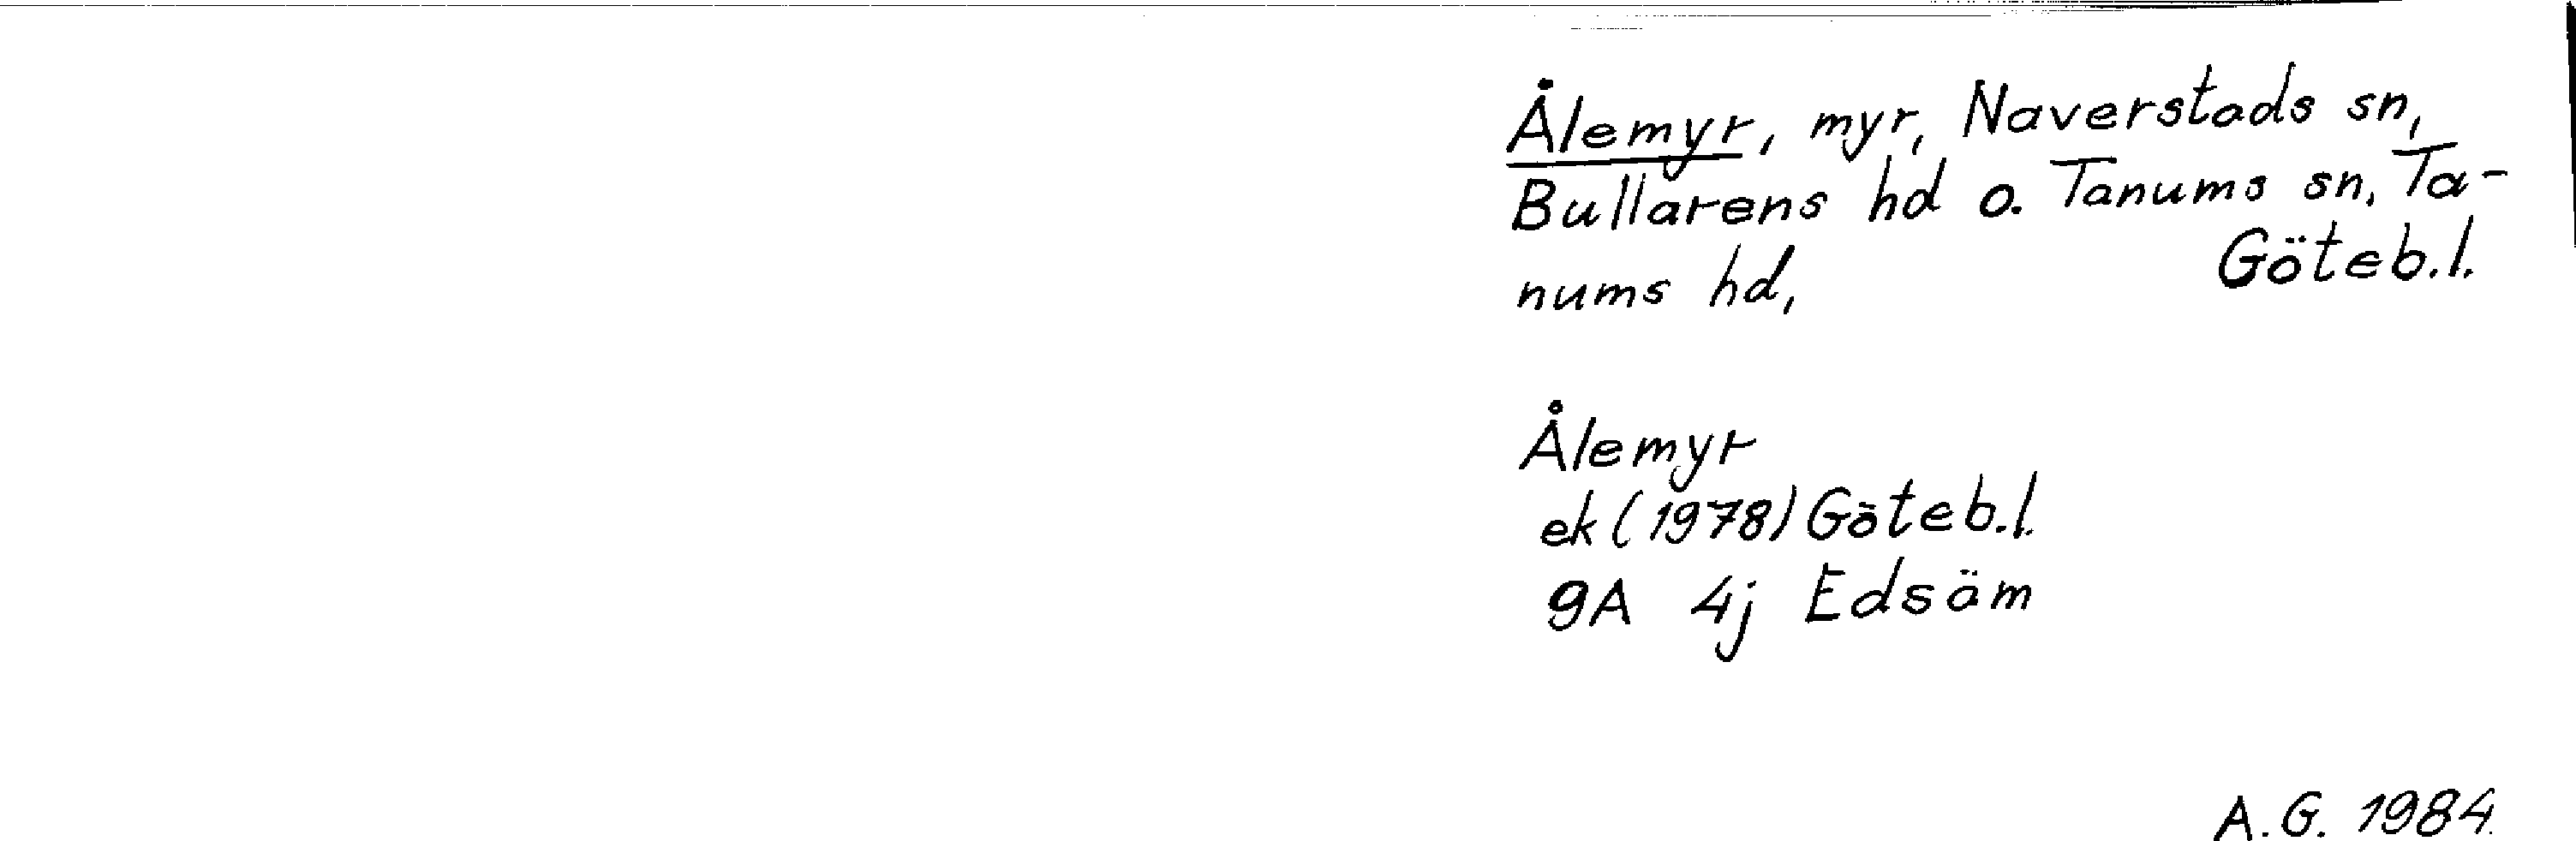 Ålemyr, myr, Naverstads sn,
Bullarens hd o. Tanums sn, Ta-
nums hd, Göteb.l.
Ålemyr
ek (1978) Göteb.l.
9A 4j Edsäm
A.G. 1984